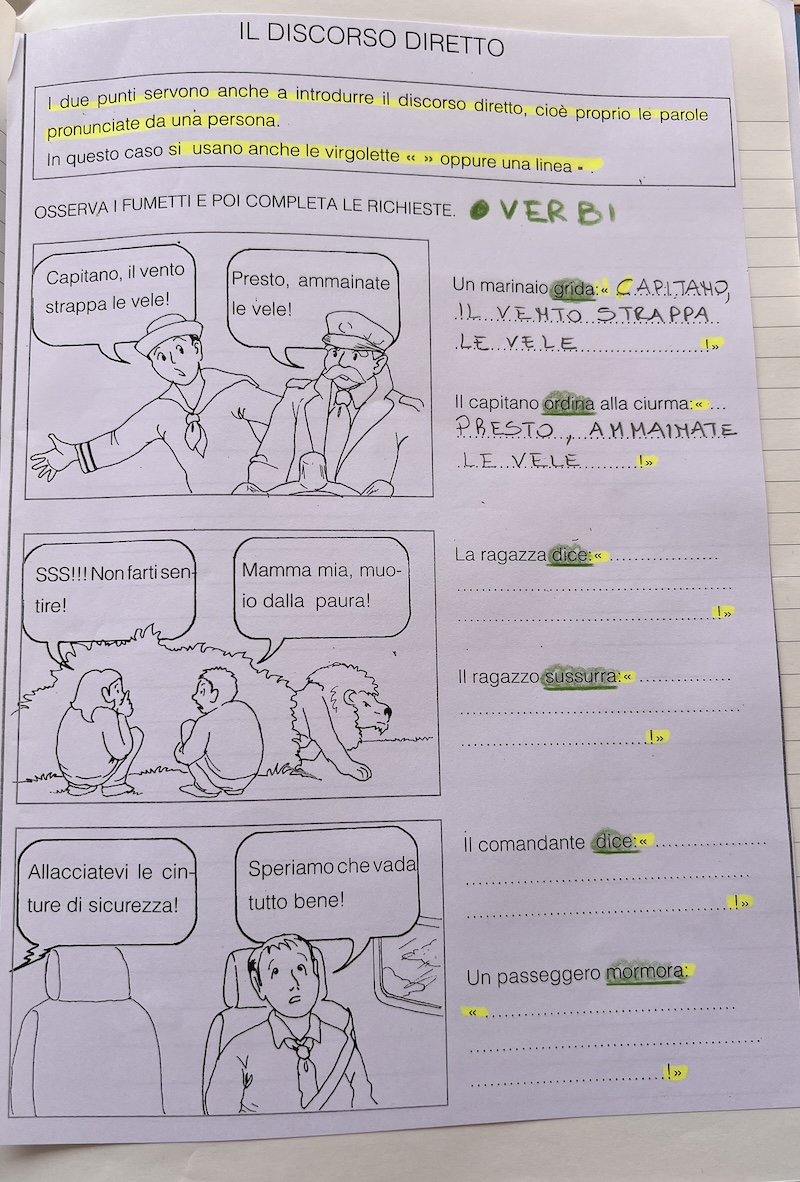 IL DISCORSO DIRETTO
I due punti servono anche a introdurre il discorso diretto, cioè proprio le parole
pronunciate da una persona.
In questo caso si usano anche le virgolette « » oppure una linea - .
OSSERVA I FUMETTI E POI COMPLETA LE RICHIESTE. • VERBI
Capitano, il vento
strappa le vele!
Presto, ammainate
le vele!
Un marinaio grida:« CAPITANO,
IL VENTO STRAPPA
LE VELE !»
Il capitano ordina alla ciurma:«...
PRESTO, AMMAINATE
LE VELE !»
SSS!!! Non farti sen-
tire!
Mamma mia, muo-
io dalla paura!
La ragazza dice:« ....................
..............................
.............................. !»
Il ragazzo sussurra:« ................
..............................
.............................. !»
Allacciatevi le cin-
ture di sicurezza!
Speriamo che vada
tutto bene!
Il comandante dice:« ....................
..............................
.............................. !»
Un passeggero mormora:
« ..............................
..............................
.............................. !»